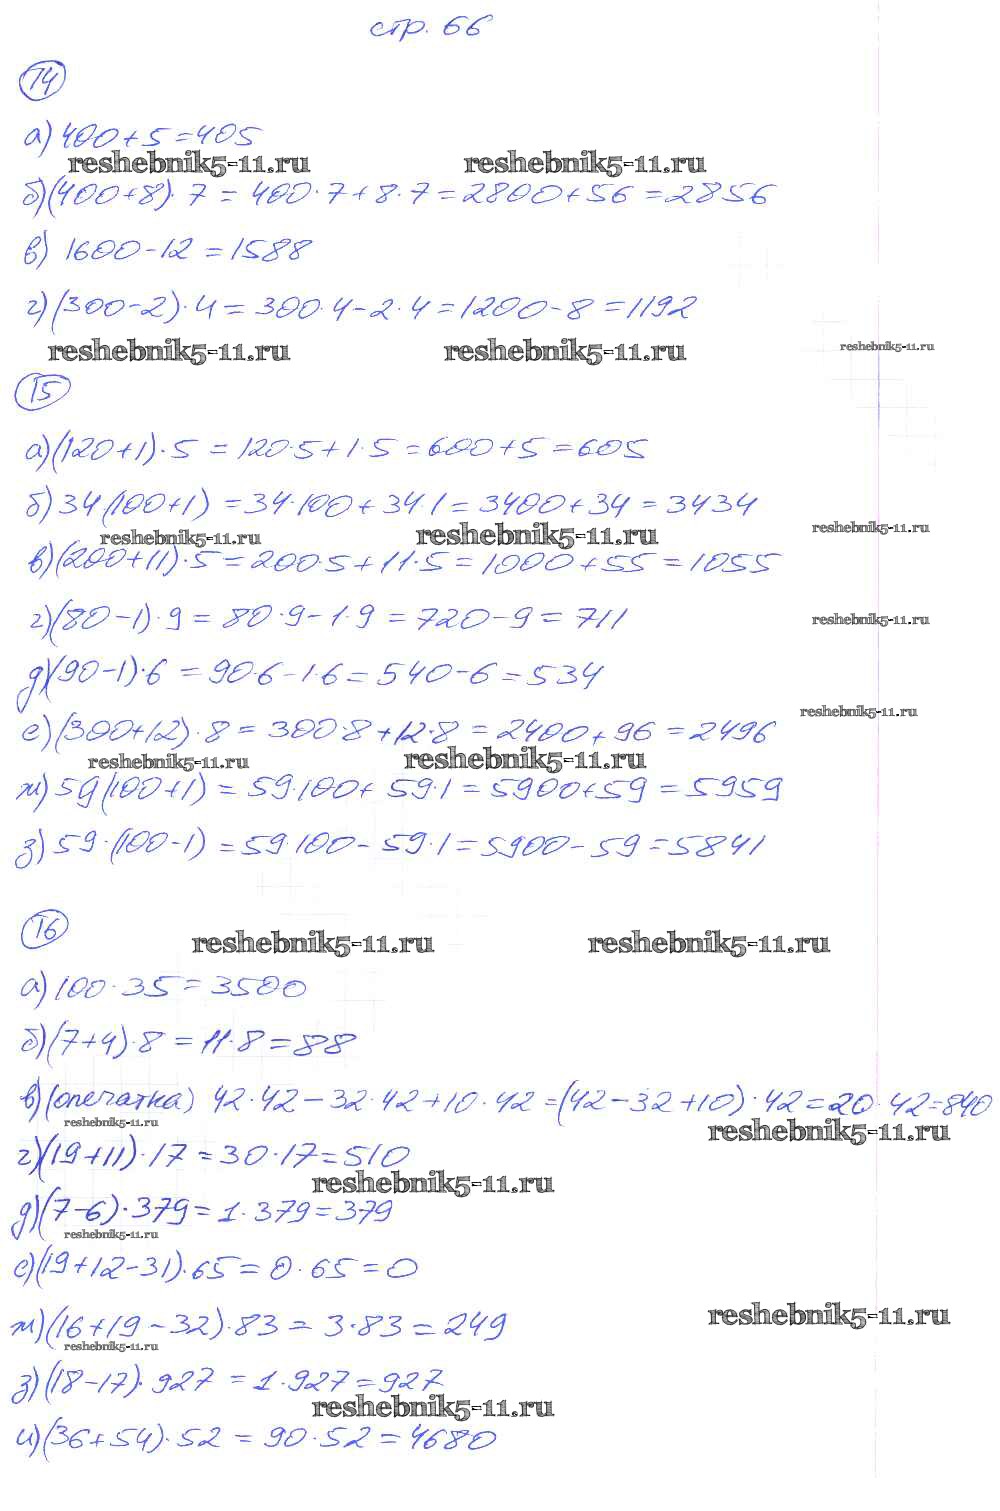 стр. 66
14
а) 400+5=405
reshebnik5-11.ru reshebnik5-11.ru
б) (400+8)·7 = 400·7+8·7=2800+56=2856
в) 1600-12=1588
г) (300-2)·4=300·4-2·4=1200-8=1192
reshebnik5-11.ru reshebnik5-11.ru reshebnik5-11.ru
15
а) (120+1)·5 = 120·5+1·5=600+5=605
б) 34(100+1) = 34·100+34·1=3400+34=3434
reshebnik5-11.ru reshebnik5-11.ru reshebnik5-11.ru
в) (200+11)·5=200·5+11·5=1000+55=1055
г) (80-1)·9=80·9-1·9=720-9=711
reshebnik5-11.ru
д) (90-1)·6 =90·6-1·6=540-6=534
reshebnik5-11.ru
е) (300+12)·8=300·8+12·8=2400+96=2496
reshebnik5-11.ru reshebnik5-11.ru
ж) 59(100+1) = 59·100+59·1=5900+59=5959
з) 59·(100-1) =59·100-59·1=5900-59=5841
16
reshebnik5-11.ru reshebnik5-11.ru
а) 100·35=3500
б) (7+4)·8=11·8=88
в) (опечатка) 42·42-32·42+10·42=(42-32+10)·42=20·42=840
reshebnik5-11.ru reshebnik5-11.ru
г) (19+11)·17=30·17=510
reshebnik5-11.ru
д) (7-6)·379=1·379=379
reshebnik5-11.ru
е) (19+12-31)·65=0·65=0
reshebnik5-11.ru
ж) (16+19-32)·83=3·83=249
reshebnik5-11.ru
з) (18-17)·927=1·927=927
reshebnik5-11.ru
и) (36+54)·52=90·52=4680